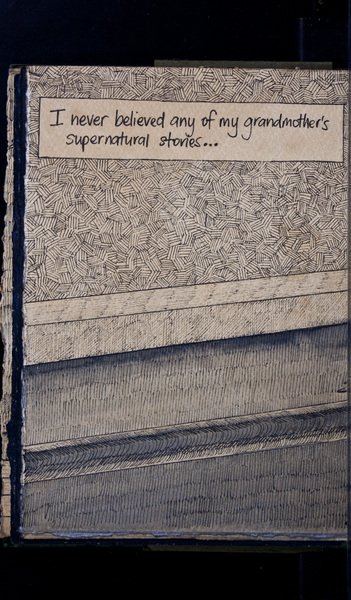 I never believed any of my grandmother's
supernatural stories...